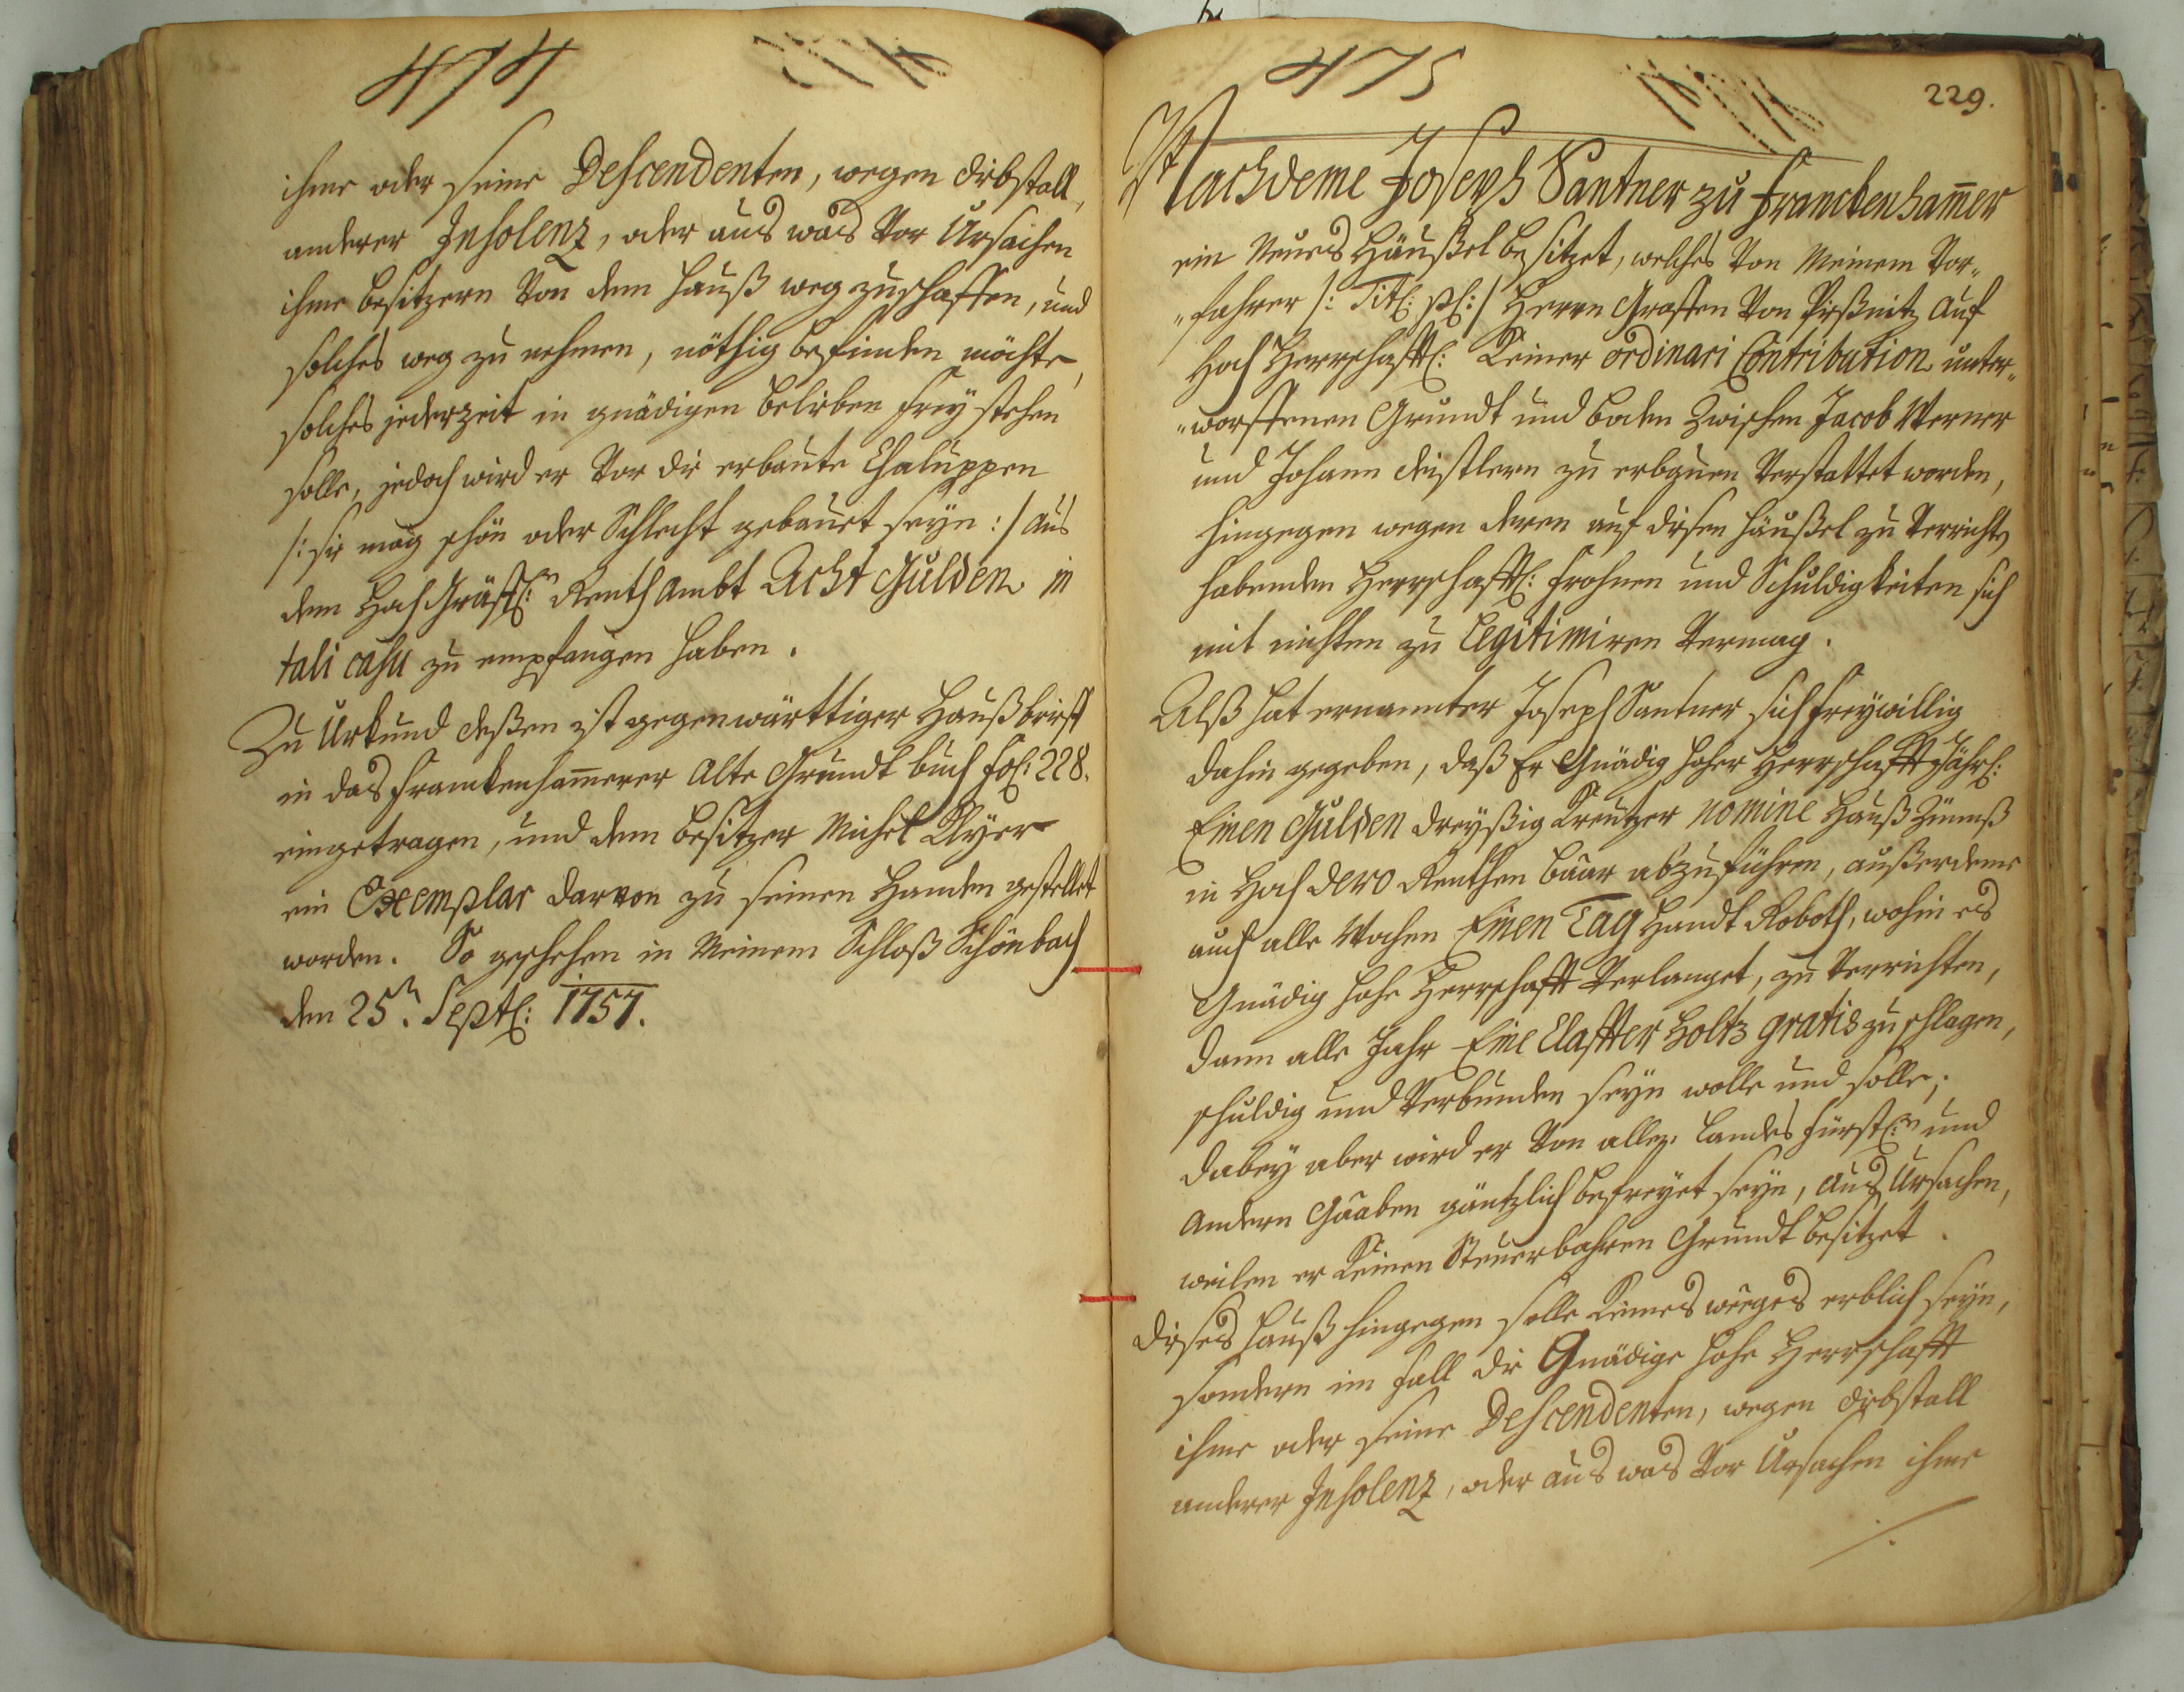 474
ihme oder seine Descendenten, wegen diebstall,
anderer Insolenz, oder aus was vor Ursachen
ihme besitzern von dem Hauß weg zuschaffen, und
solches weg zu nehmen, nöthig befinden möchte,
solches jederzeit in gnädigen belieben frey stehen
solle, jedoch wird er vor die erbaute Chaluppen
/: sie mag schön oder Schlecht gebauet seyn :/ aus
dem Hochgräffl:n Renth Ambt Acht Gulden in
tali casu zu empfangen haben.
Zu Urkund deßen ist gegenwärttiger Haußbrieff
in das Franckenhammerer Alte Grundt buch fol: 228.
eingetragen, und dem besitzer Michel
ein Exemplar darvon zu seinen Handen gestellet
worden. So geschehen in Meinem Schloß Schönbach
den 25.n Septl: 1757.
475
229.
Nachdeme Joseph Santner zu Franckenham̄er
ein Neues Häußel besitzet, welches von Meinem Vor„
„fahrer /: Titl: pl: / Herrn Graffen von auf
Hoch Herrschafftl: Keiner ordinari Contribution unter„
„worffenen Grundt und boden zwischen Jacob Werner
und Johann zu erbauen verstattet worden,
hingegen wegen deren auf diesen Häußel zu verrichten
habenden Herrschafftl: Frohnen und Schuldigkeiten sich
mit nichten zu Legitimiren vermag.
Alß hat ernannter Joseph Santner sich freywillig
dahin gegeben, daß Er Gnädig hoher Herrschafft Jährl:
Einen Gulden dreyßig Kreutzer nomine Hauß Zünnß
in Hoch dero Renthen baar abzuführen, außerdeme
auch alle Wochen Einen Tag Handt Roboth, wohin es
Gnädig hohe Herrschafft verlanget, zu verrichten,
dann alle Jahr Eine Claffter Holtz gratis zu schlagen,
schuldig und verbunden seyn wolle und solle;
dabey aber wird er von allen Landes Fürstl:n und
andern Gaaben gäntzlich befreyet seyn, aus Ursachen,
weilen er Keinen Steuerbahren Grundt besitzet.
Dieses Hauß hingegen solle Keines weeges erblich seyn,
sondern im fall die Gnädige hohe Herrschafft
ihme oder seine Descendenten, wegen diebstall
anderer Insolenz, oder aus was vor Ursachen ihme